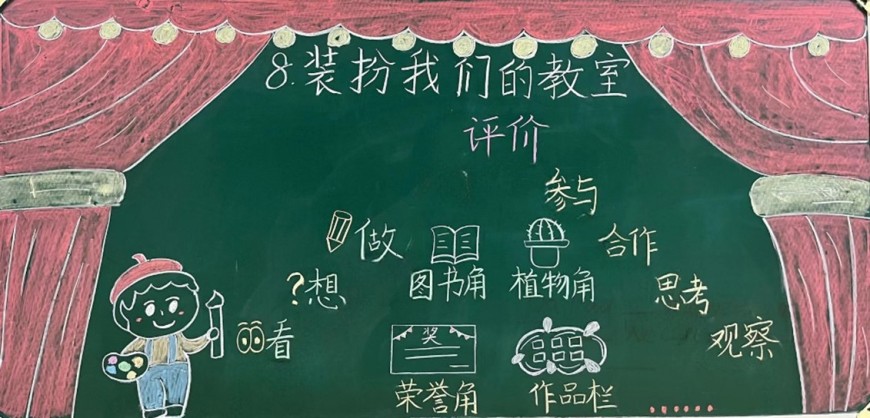 8.装扮我们的教室
评价
参与
做
合作
?想
图书角
植物角
思考
看
奖
观察
荣誉角
作品栏
......